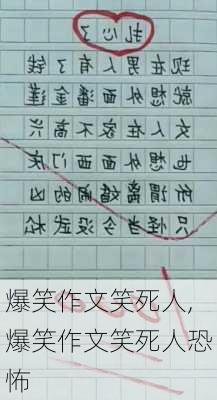 扎心了
现在男人有了钱
就想外面潘金莲
女人在家不高兴
也想外面西门庆
所谓离婚的凶
只怪当今没武松
爆笑作文笑死人,
爆笑作文笑死人恐
怖